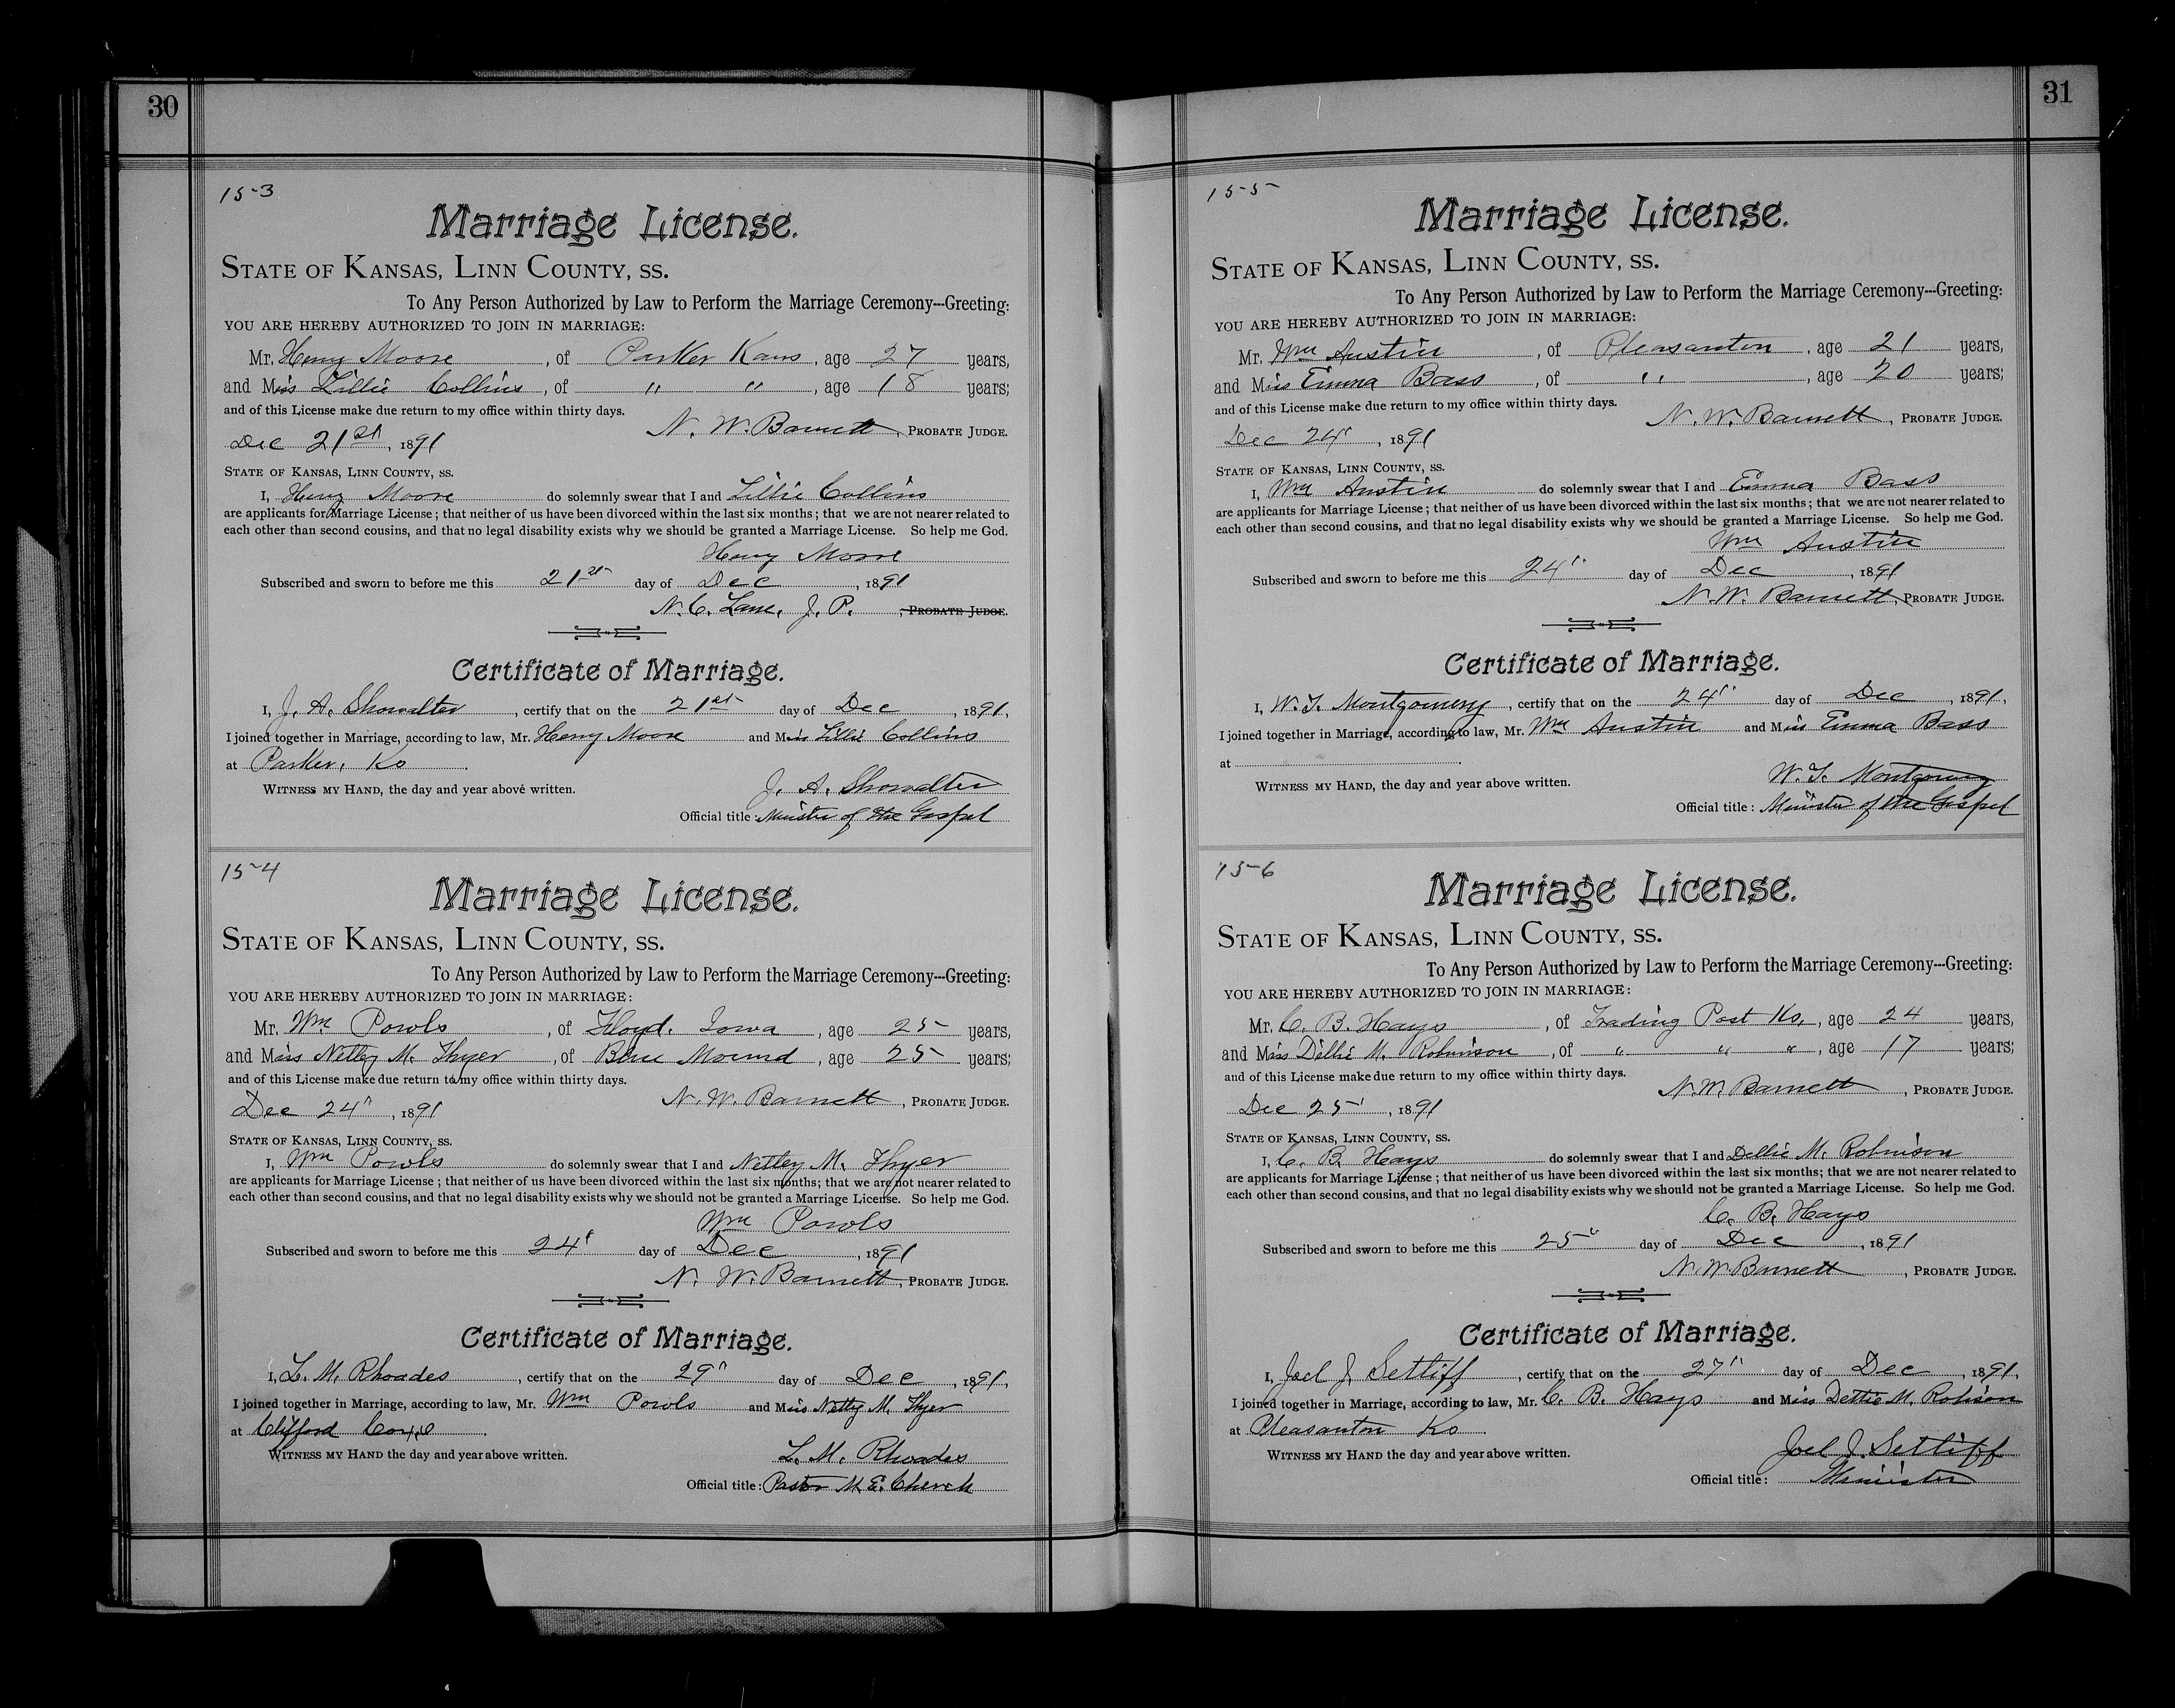 30
153
Marriage License.
STATE OF KANSAS, LINN COUNTY, SS.
To Any Person Authorized by Law to Perform the Marriage Ceremony---Greeting:
YOU ARE HEREBY AUTHORIZED TO JOIN IN MARRIAGE:
Mr. Henry Moore, of Parker Kans, age 27 years,
and Miss Lillie Collins, of " ", age 18 years;
and of this License make due return to my office within thirty days.
N. W. Barnett, PROBATE JUDGE.
Dec 21st, 1891
STATE OF KANSAS, LINN COUNTY, SS.
I, Henry Moore do solemnly swear that I and Lillie Collins
are applicants for Marriage License; that neither of us have been divorced within the last six months; that we are not nearer related to
each other than second cousins, and that no legal disability exists why we should be granted a Marriage License. So help me God.
Henry Moore
Subscribed and sworn to before me this 21st day of Dec, 1891
N. C. Lane, J. P., PROBATE JUDGE.
Certificate of Marriage.
I, J. A. Showalter, certify that on the 21st day of Dec, 1891,
I joined together in Marriage, according to law, Mr. Henry Moore and Miss Lillie Collins
at Parker, Ks.
WITNESS MY HAND, the day and year above written.
J. A. Showalter
Official title: Minister of the Gospel
154
Marriage License.
STATE OF KANSAS, LINN COUNTY, SS.
To Any Person Authorized by Law to Perform the Marriage Ceremony---Greeting:
YOU ARE HEREBY AUTHORIZED TO JOIN IN MARRIAGE:
Mr. Wm Powls, of Floyd. Iowa, age 25 years,
and Miss Nettey M. Thyer, of Blue Mound, age 25 years;
and of this License make due return to my office within thirty days.
N. W. Barnett, PROBATE JUDGE.
Dec 24", 1891
STATE OF KANSAS, LINN COUNTY, SS.
I, Wm Powls do solemnly swear that I and Nettey M. Thyer
are applicants for Marriage License; that neither of us have been divorced within the last six months; that we are not nearer related to
each other than second cousins, and that no legal disability exists why we should not be granted a Marriage License. So help me God.
Wm Powls
Subscribed and sworn to before me this 24" day of Dec, 1891
N. W. Barnett, PROBATE JUDGE.
Certificate of Marriage.
I, L. M. Rhoades, certify that on the 29" day of Dec, 1891,
I joined together in Marriage, according to law, Mr. Wm Powls and Miss Netty M. Thyer
at Clifford.
WITNESS MY HAND the day and year above written.
L. M. Rhoades
Official title: Pastor M. E. Church
31
155
Marriage License.
STATE OF KANSAS, LINN COUNTY, SS.
To Any Person Authorized by Law to Perform the Marriage Ceremony---Greeting:
YOU ARE HEREBY AUTHORIZED TO JOIN IN MARRIAGE:
Mr. Wm Austin, of Pleasanton, age 21 years,
and Miss Emma Bass, of ", age 20 years;
and of this License make due return to my office within thirty days.
N. W. Barnett, PROBATE JUDGE.
Dec 24", 1891
STATE OF KANSAS, LINN COUNTY, SS.
I, Wm Austin do solemnly swear that I and Emma Bass
are applicants for Marriage License; that neither of us have been divorced within the last six months; that we are not nearer related to
each other than second cousins, and that no legal disability exists why we should be granted a Marriage License. So help me God.
Wm Austin
Subscribed and sworn to before me this 24" day of Dec, 1891
N. W. Barnett, PROBATE JUDGE.
Certificate of Marriage.
I, W. T. Montgomery, certify that on the 24" day of Dec, 1891,
I joined together in Marriage, according to law, Mr. Wm Austin and Miss Emma Bass
at
WITNESS MY HAND, the day and year above written.
W. T. Montgomery
Official title: Minister of the Gospel
156
Marriage License.
STATE OF KANSAS, LINN COUNTY, SS.
To Any Person Authorized by Law to Perform the Marriage Ceremony---Greeting:
YOU ARE HEREBY AUTHORIZED TO JOIN IN MARRIAGE:
Mr. C. B. Hays, of Trading Post Ks., age 24 years,
and Miss Dellie M. Robinson, of " " ", age 17 years;
and of this License make due return to my office within thirty days.
N. W. Barnett, PROBATE JUDGE.
Dec 25", 1891
STATE OF KANSAS, LINN COUNTY, SS.
I, C. B. Hays do solemnly swear that I and Dellie M. Robinson
are applicants for Marriage License; that neither of us have been divorced within the last six months; that we are not nearer related to
each other than second cousins, and that no legal disability exists why we should not be granted a Marriage License. So help me God.
C. B. Hays
Subscribed and sworn to before me this 25" day of Dec, 1891
N. W. Barnett, PROBATE JUDGE.
Certificate of Marriage.
I, Joel J Setliff, certify that on the 27" day of Dec, 1891,
I joined together in Marriage, according to law, Mr. C. B. Hays and Miss Dettie M. Robison
at Pleasanton Ks.
WITNESS MY HAND the day and year above written.
Joel J. Setliff
Official title: Minister